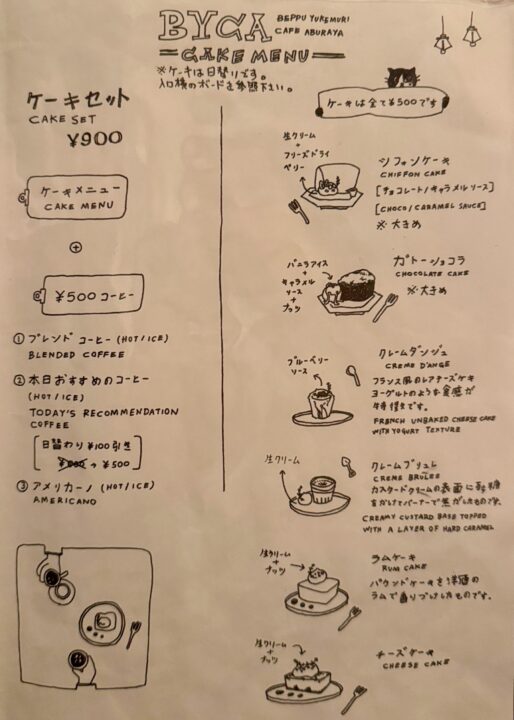 BYCA
BEPPU YUKEMURI
CAFE ABURAYA
CAKE MENU
※ケーキは日替りです。
入口横のボードを参照下さい。
ケーキセット
CAKE SET
¥900
ケーキメニュー
CAKE MENU
+
¥500 コーヒー
① ブレンド コーヒー (HOT/ICE)
BLENDED COFFEE
② 本日おすすめのコーヒー
(HOT/ICE)
TODAY'S RECOMMENDATION
COFFEE
日替わり ¥100引き
→ ¥500
③ アメリカーノ (HOT/ICE)
AMERICANO
ケーキは全て¥500です
生クリーム
+
フリーズドライ
ベリー
シフォンケーキ
CHIFFON CAKE
[チョコレート/キャラメルソース]
[CHOCO/CARAMEL SAUCE]
※大きめ
バニラアイス
+
キャラメル
ソース
+
ナッツ
ガトーショコラ
CHOCOLATE CAKE
※大きめ
ブルーベリー
ソース
クレームダンジュ
CREME D'ANGE
フランス風のレアチーズケーキ
ヨーグルトのような食感が
特徴です。
FRENCH UNBAKED CHEESE CAKE
WITH YOGURT TEXTURE
生クリーム
クレームブリュレ
CREME BRULEE
カスタードクリームの表面に砂糖
をかけてバーナーで焦がしたものです。
CREAMY CUSTARD BASE TOPPED
WITH A LAYER OF HARD CARAMEL
生クリーム
+
ナッツ
ラムケーキ
RUM CAKE
パウンドケーキを洋酒の
ラムで香りづけしたものです。
生クリーム
+
ナッツ
チーズケーキ
CHEESE CAKE